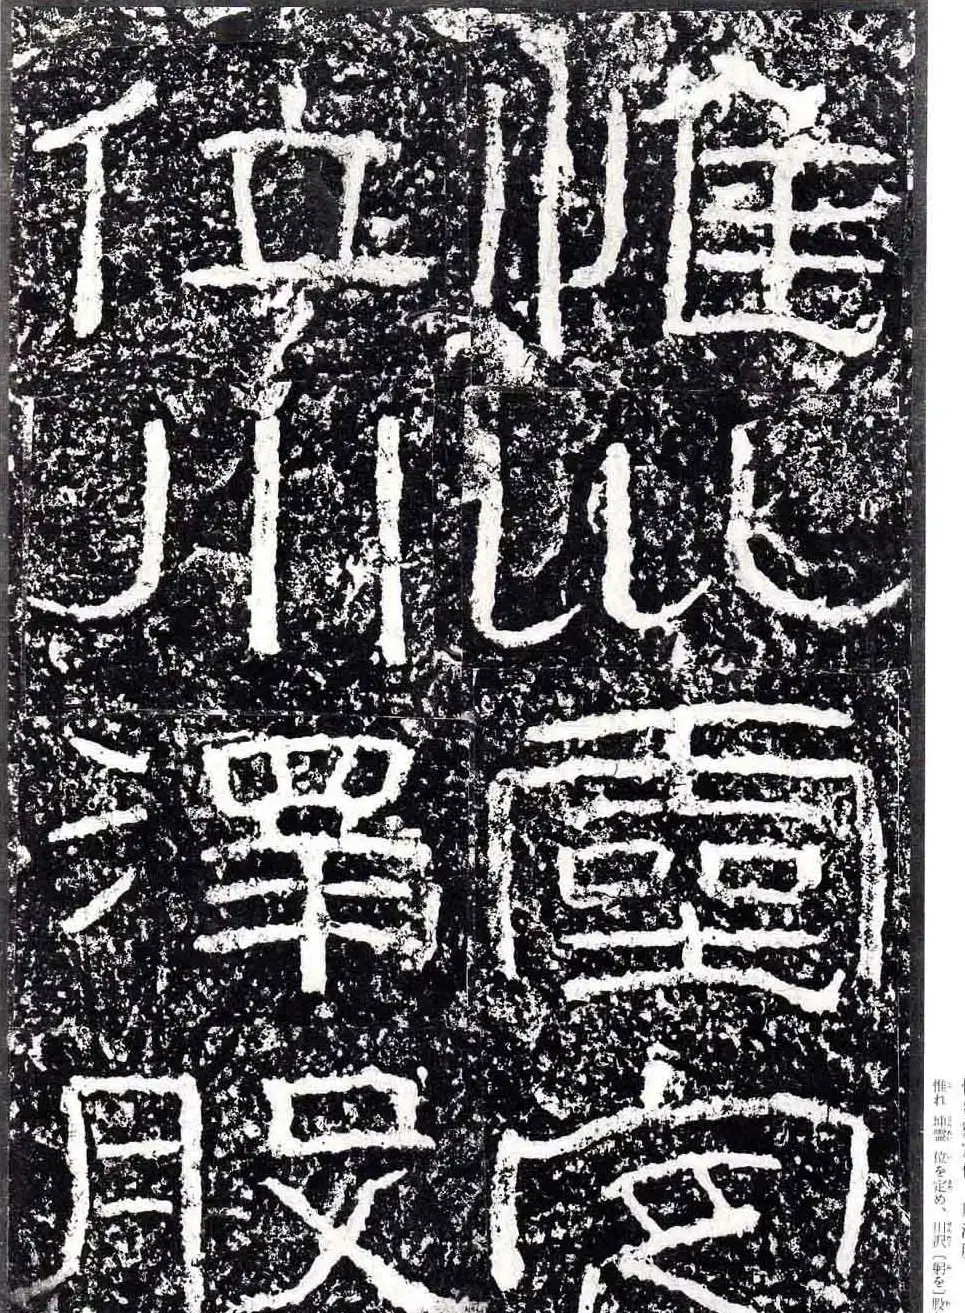 惟巛靈定
位川澤股
惟れ 坤霊 位を定め、川沢〔躬を〕股